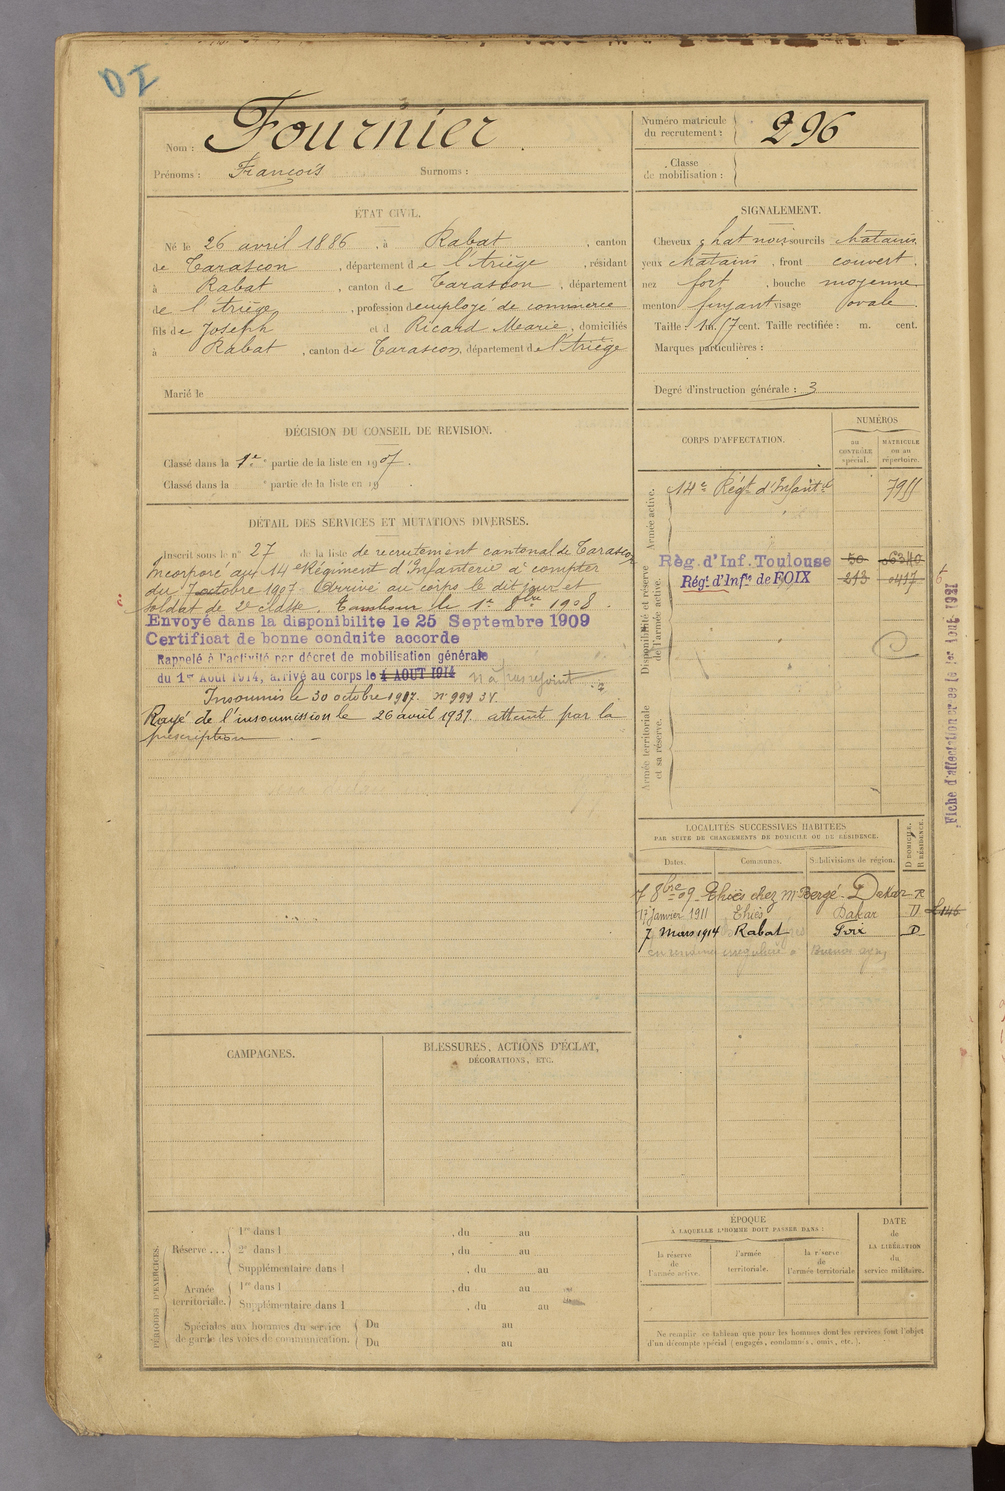 DI
Nom : Fournier
Prénoms : François Surnoms :
Numéro matricule du recrutement : 296
Classe de mobilisation :
ÉTAT CIVIL.
Né le 26 avril 1886, à Rabat, canton
de Tarascon, département de l'Ariège, résidant
à Rabat, canton de Tarascon, département
de l'Ariège, profession d'employé de commerce
fils de Joseph et d Ricard Marie, domiciliés
à Rabat, canton de Tarascon, département de l'Ariège
Marié le
SIGNALEMENT.
Cheveux chat noirs sourcils châtains
yeux châtains, front couvert.
nez fort, bouche moyenne
menton fuyant visage ovale
Taille : 1 m. 57 cent. Taille rectifiée : m. cent.
Marques particulières :
Degré d'instruction générale : 3
DÉCISION DU CONSEIL DE REVISION.
Classé dans la 1re partie de la liste en 1907.
Classé dans la partie de la liste en 19
DÉTAIL DES SERVICES ET MUTATIONS DIVERSES.
Inscrit sous le n° 27 de la liste de recrutement cantonal de Tarascon
Incorporé au 14e Régiment d'Infanterie à compter
du 7 octobre 1907 Arrivé au corps le dit jour et
soldat de 2e classe. Tambour le 1er 8bre 1908.
Envoyé dans la disponibilite le 25 Septembre 1909
Certificat de bonne conduite accorde
Rappelé à l'activité par décret de mobilisation générale
du 1er Août 1914, arrivé au corps le 4 AOUT 1914 n'a pas rejoint
Insoumis le 30 octobre 1917. n° 999 34.
Rayé de l'insoumission le 26 avril 1939. atteint par la
prescription
CORPS D'AFFECTATION.
NUMÉROS
AU CONTRÔLE spécial.
MATRICULE ou au répertoire.
Armée active.
14e Régt d'Infantie 7911
Disponibilité et réserve de l'armée active.
Règ. d'Inf. Toulouse 50 06340
Régt d'Infie de FOIX 213 0417
Armée territoriale et sa réserve.
Fiche d'affectation créée le 1er Août 1921
LOCALITÉS SUCCESSIVES HABITÉES
PAR SUITE DE CHANGEMENTS DE DOMICILE OU DE RÉSIDENCE.
Dates. Communes. Subdivisions de région. D DOMICILE. R RÉSIDENCE.
7 8bre 09 Thiès chez Mr Bergé Dakar R
17 janvier 1911 Thiès Dakar D
7 Mars 1914 Rabat Foix D
CAMPAGNES.
BLESSURES, ACTIONS D'ÉCLAT,
DÉCORATIONS, ETC.
PÉRIODES D'EXERCICES.
Réserve . . .
1re dans l , du au
2e dans l , du au
Supplémentaire dans l , du au
Armée territoriale.
1re dans l , du au
Supplémentaire dans l , du au
Spéciales aux hommes du service de garde des voies de communication.
Du au
Du au
ÉPOQUE
À LAQUELLE L'HOMME DOIT PASSER DANS :
la réserve de l'armée active.
l'armée territoriale.
la réserve de l'armée territoriale
DATE de LA LIBÉRATION du service militaire.
Ne remplir ce tableau que pour les hommes dont les services font l'objet
d'un décompte spécial (engagés, condamnés, omis, etc.).